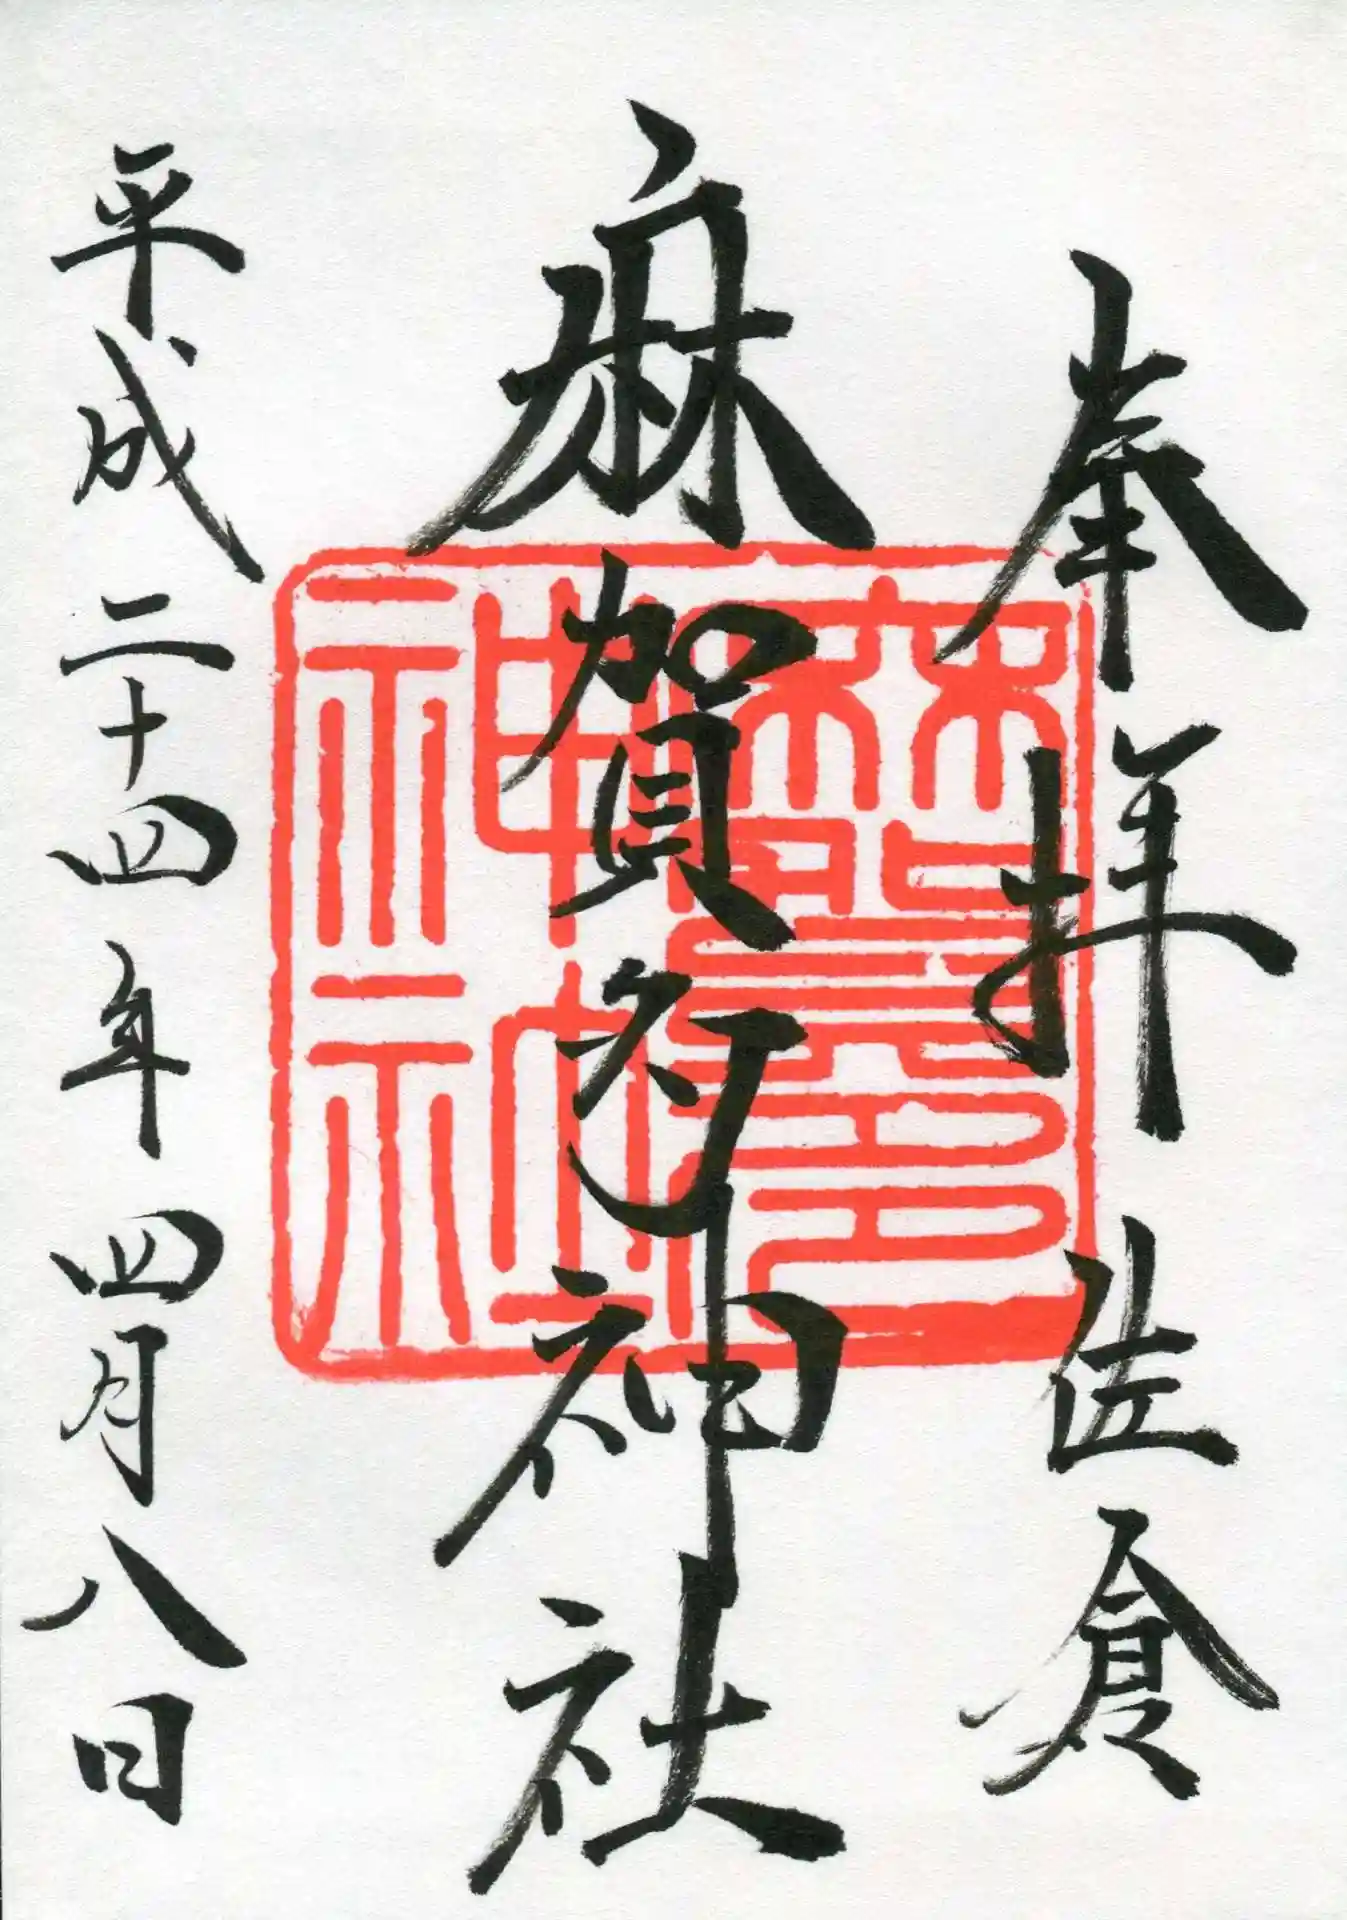 奉拝 佐倉
麻賀多神社
平成二十四年四月八日
麻賀多
神社